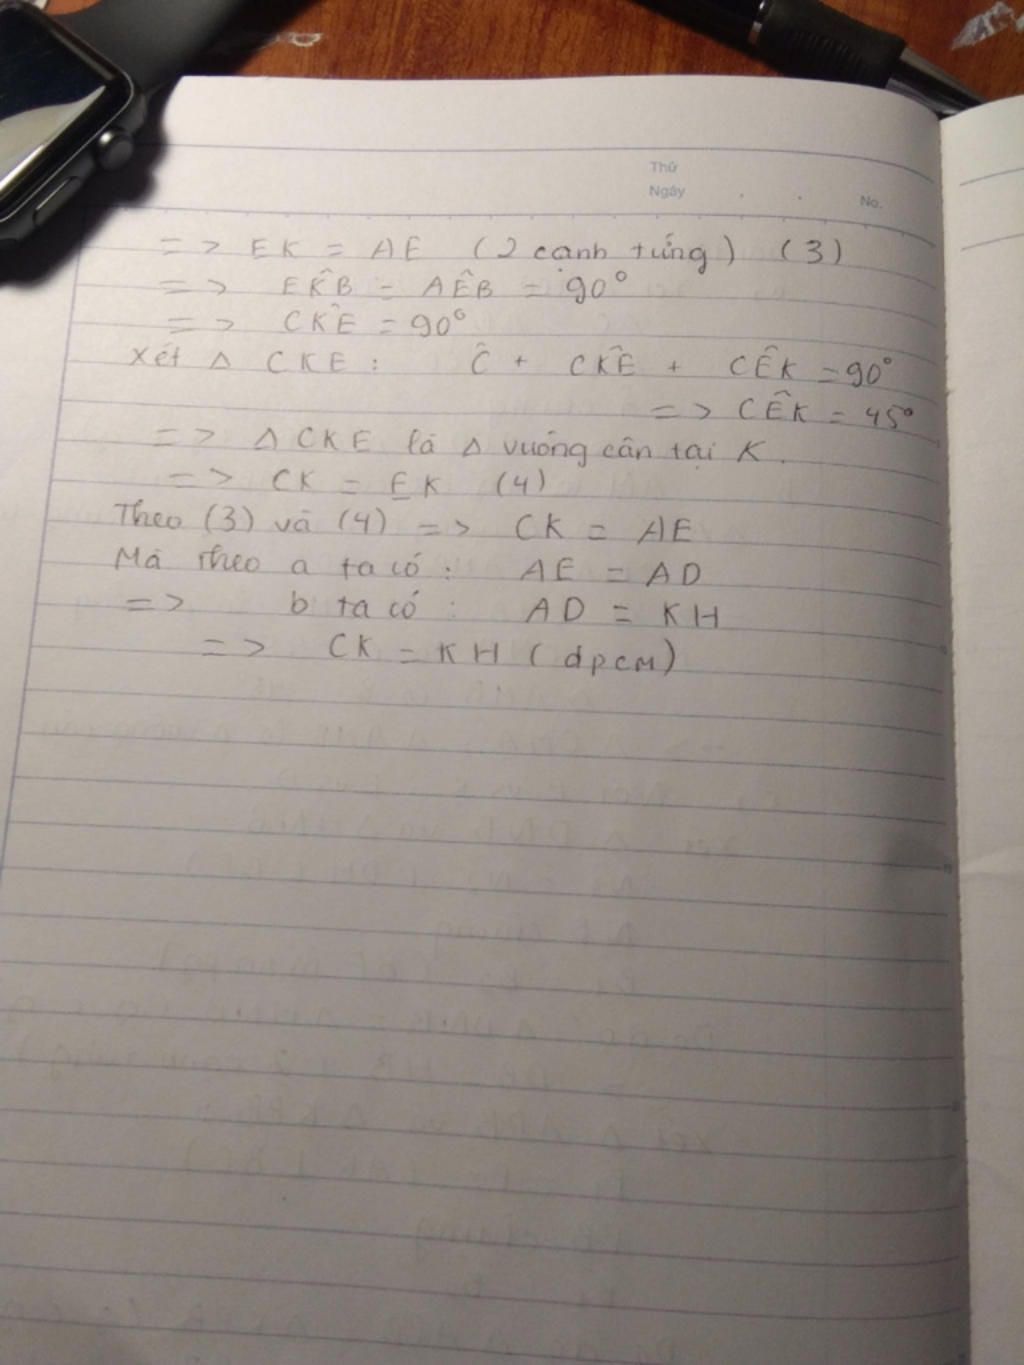 Thứ
Ngày . . No.
=> EK = AE (2 cạnh tứng) (3)
=> EK̂B = AÊB = 90°
=> CK̂E = 90°
Xét Δ CKE : Ĉ + CK̂E + CÊK = 90°
=> CÊK = 45°
=> Δ CKE là Δ vuông cân tại K.
=> CK = EK (4)
Theo (3) và (4) => CK = AE
Mà theo a ta có : AE = AD
=> b ta có : AD = KH
=> CK = KH (dpcm)